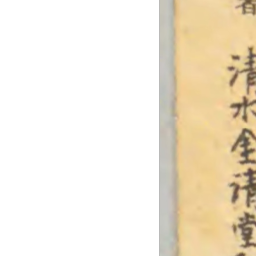 清水金清堂